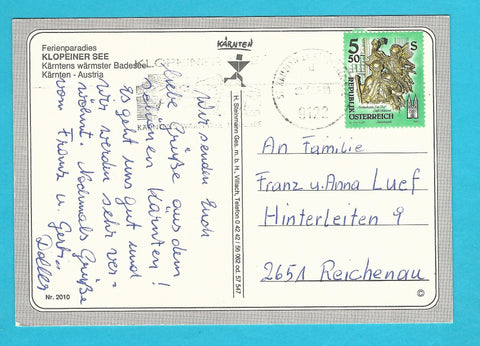 Ferienparadies
KLOPEINER SEE
Kärntens wärmster Badesee
Kärnten - Austria
KÄRNTEN
KLOPEINER
9122
5 50 S
REPUBLIK
ÖSTERREICH
Wir senden Euch
liebe Grüße aus dem
schönen Kärnten!
Es geht uns gut und
wir werden sehr ver-
wöhnt. Nochmals Grüße
von Franz u. Gerti
H. Steinmann Ges. m. b. H., Villach, Telefon 0 42 42
An Familie
Franz u. Anna Luef
Hinterleiten 9
2651 Reichenau
Nr. 2010
©